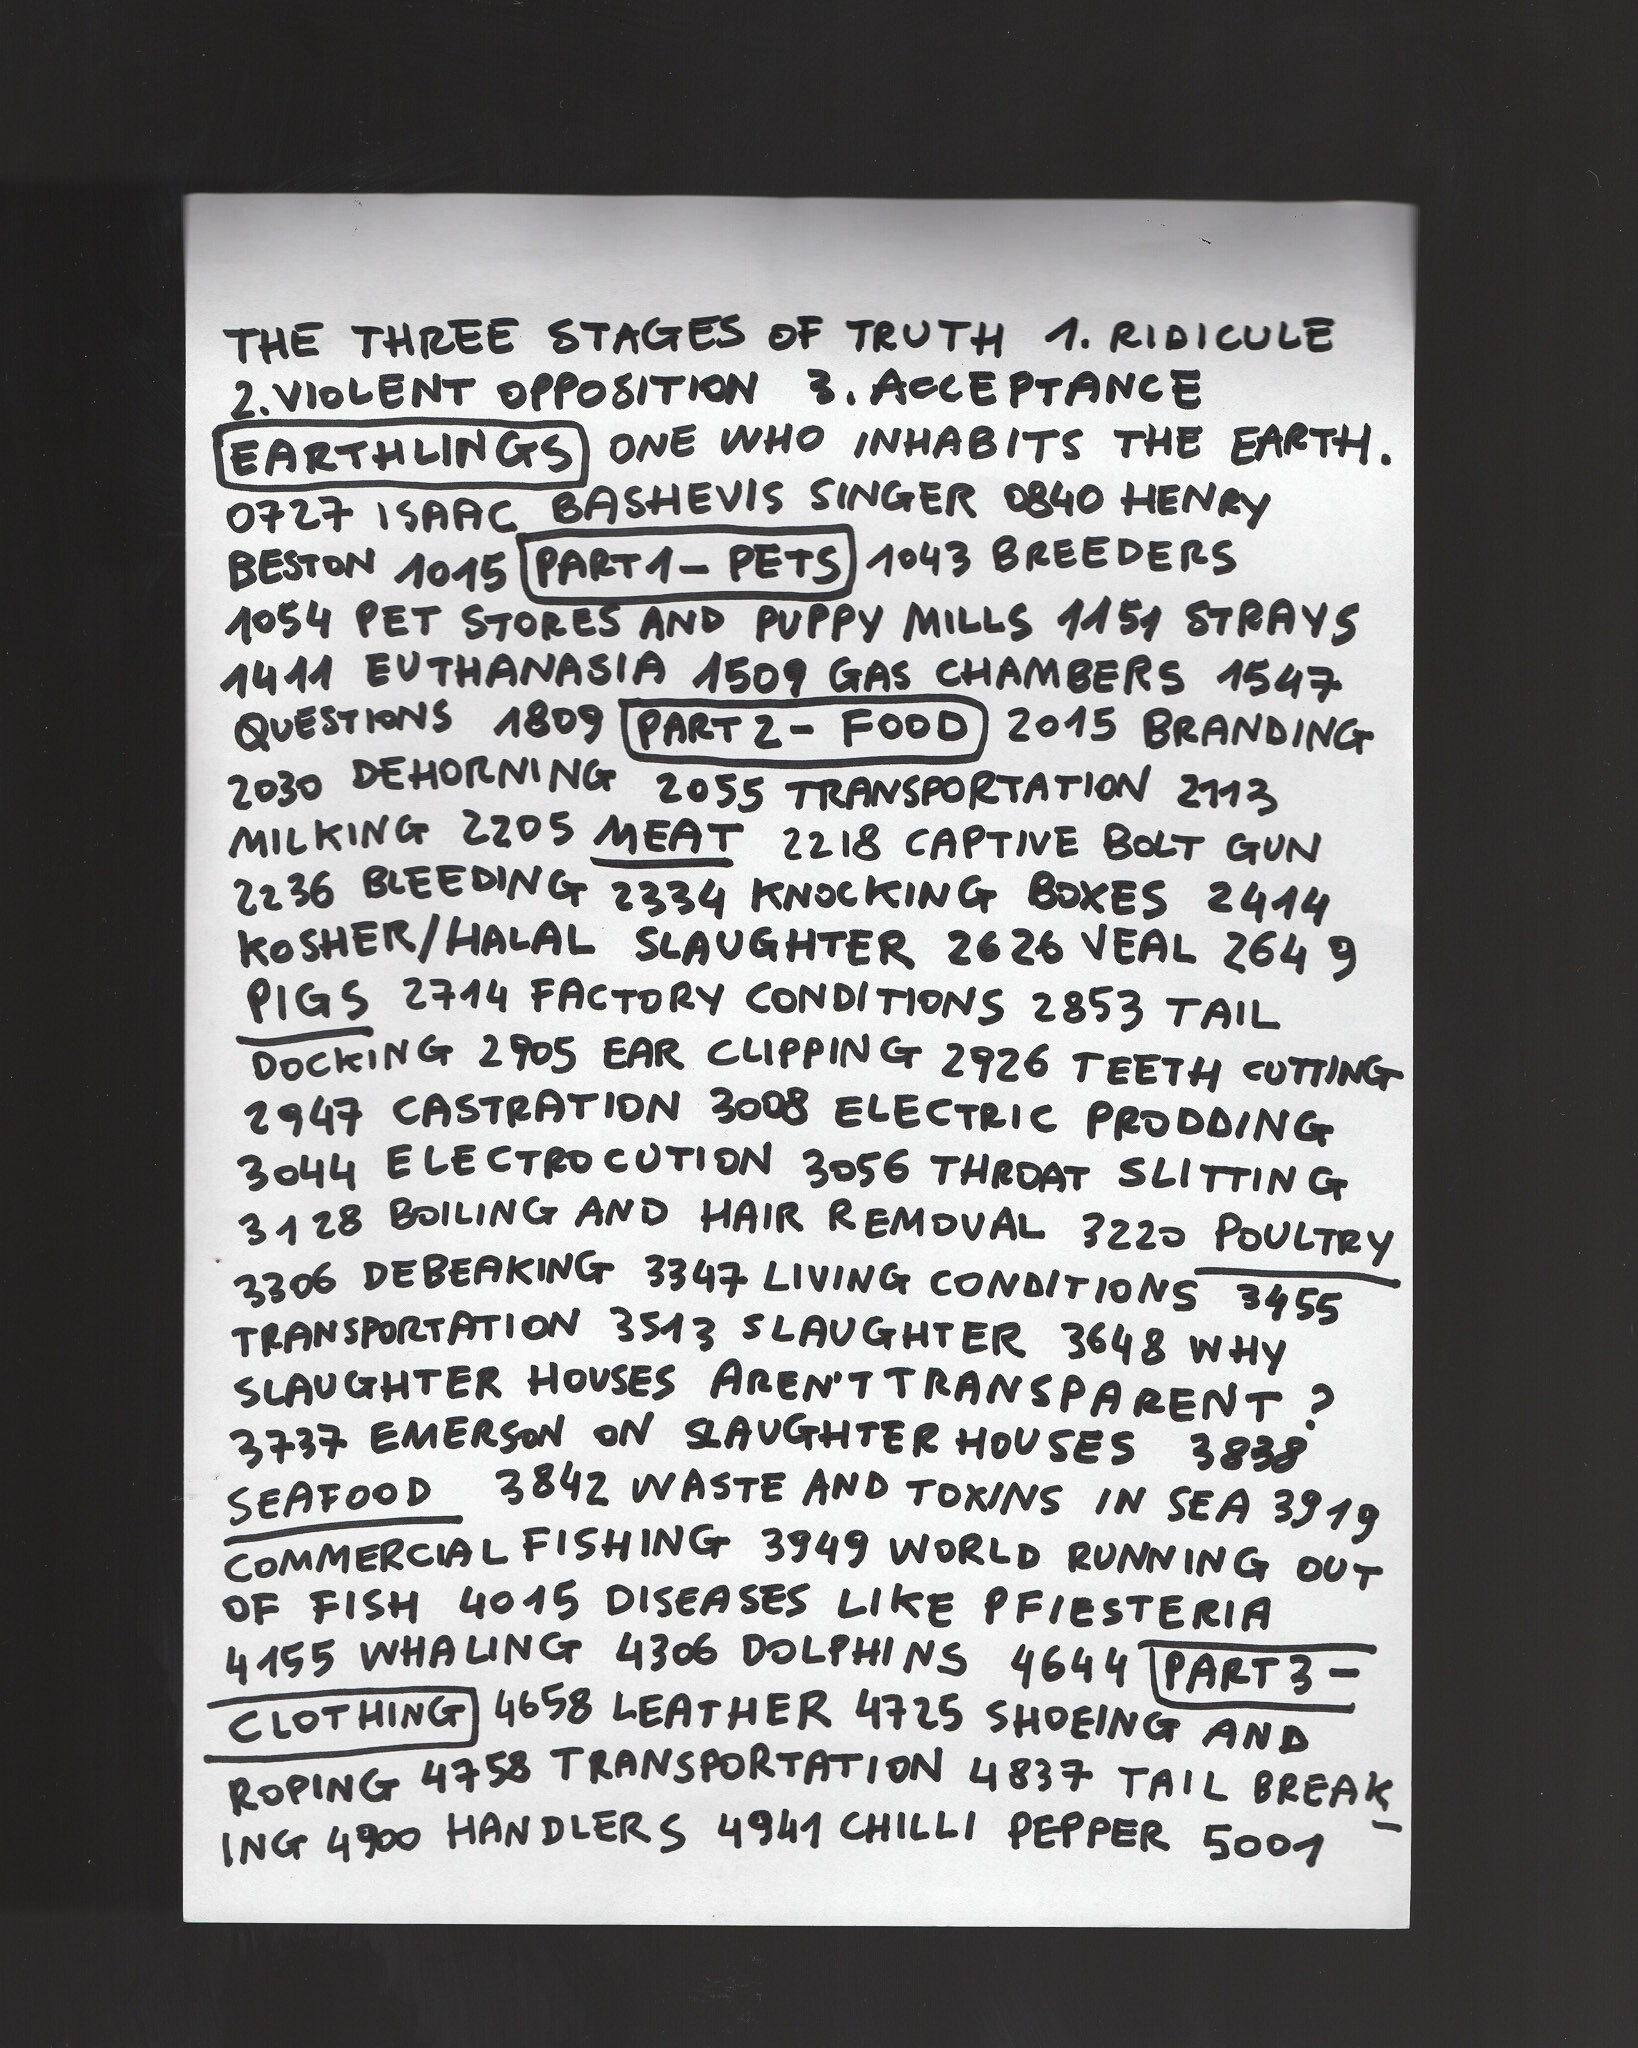 THE THREE STAGES OF TRUTH 1. RIDICULE
2. VIOLENT OPPOSITION 3. ACCEPTANCE
EARTHLINGS ONE WHO INHABITS THE EARTH.
0727 ISAAC BASHEVIS SINGER 0840 HENRY
BESTON 1015 PART 1 - PETS 1043 BREEDERS
1054 PET STORES AND PUPPY MILLS 1151 STRAYS
1411 EUTHANASIA 1509 GAS CHAMBERS 1547
QUESTIONS 1809 PART 2 - FOOD 2015 BRANDING
2030 DEHORNING 2055 TRANSPORTATION 2113
MILKING 2205 MEAT 2218 CAPTIVE BOLT GUN
2236 BLEEDING 2334 KNOCKING BOXES 2414
KOSHER/HALAL SLAUGHTER 2626 VEAL 2649
PIGS 2714 FACTORY CONDITIONS 2853 TAIL
DOCKING 2905 EAR CLIPPING 2926 TEETH CUTTING
2947 CASTRATION 3008 ELECTRIC PRODDING
3044 ELECTROCUTION 3056 THROAT SLITTING
3128 BOILING AND HAIR REMOVAL 3220 POULTRY
3306 DEBEAKING 3347 LIVING CONDITIONS 3455
TRANSPORTATION 3513 SLAUGHTER 3648 WHY
SLAUGHTER HOUSES AREN'T TRANSPARENT ?
3737 EMERSON ON SLAUGHTER HOUSES 3838
SEAFOOD 3842 WASTE AND TOXINS IN SEA 3919
COMMERCIAL FISHING 3949 WORLD RUNNING OUT
OF FISH 4015 DISEASES LIKE PFIESTERIA
4155 WHALING 4306 DOLPHINS 4644 PART 3 -
CLOTHING 4658 LEATHER 4725 SHOEING AND
ROPING 4758 TRANSPORTATION 4837 TAIL BREAK-
ING 4900 HANDLERS 4941 CHILLI PEPPER 5001